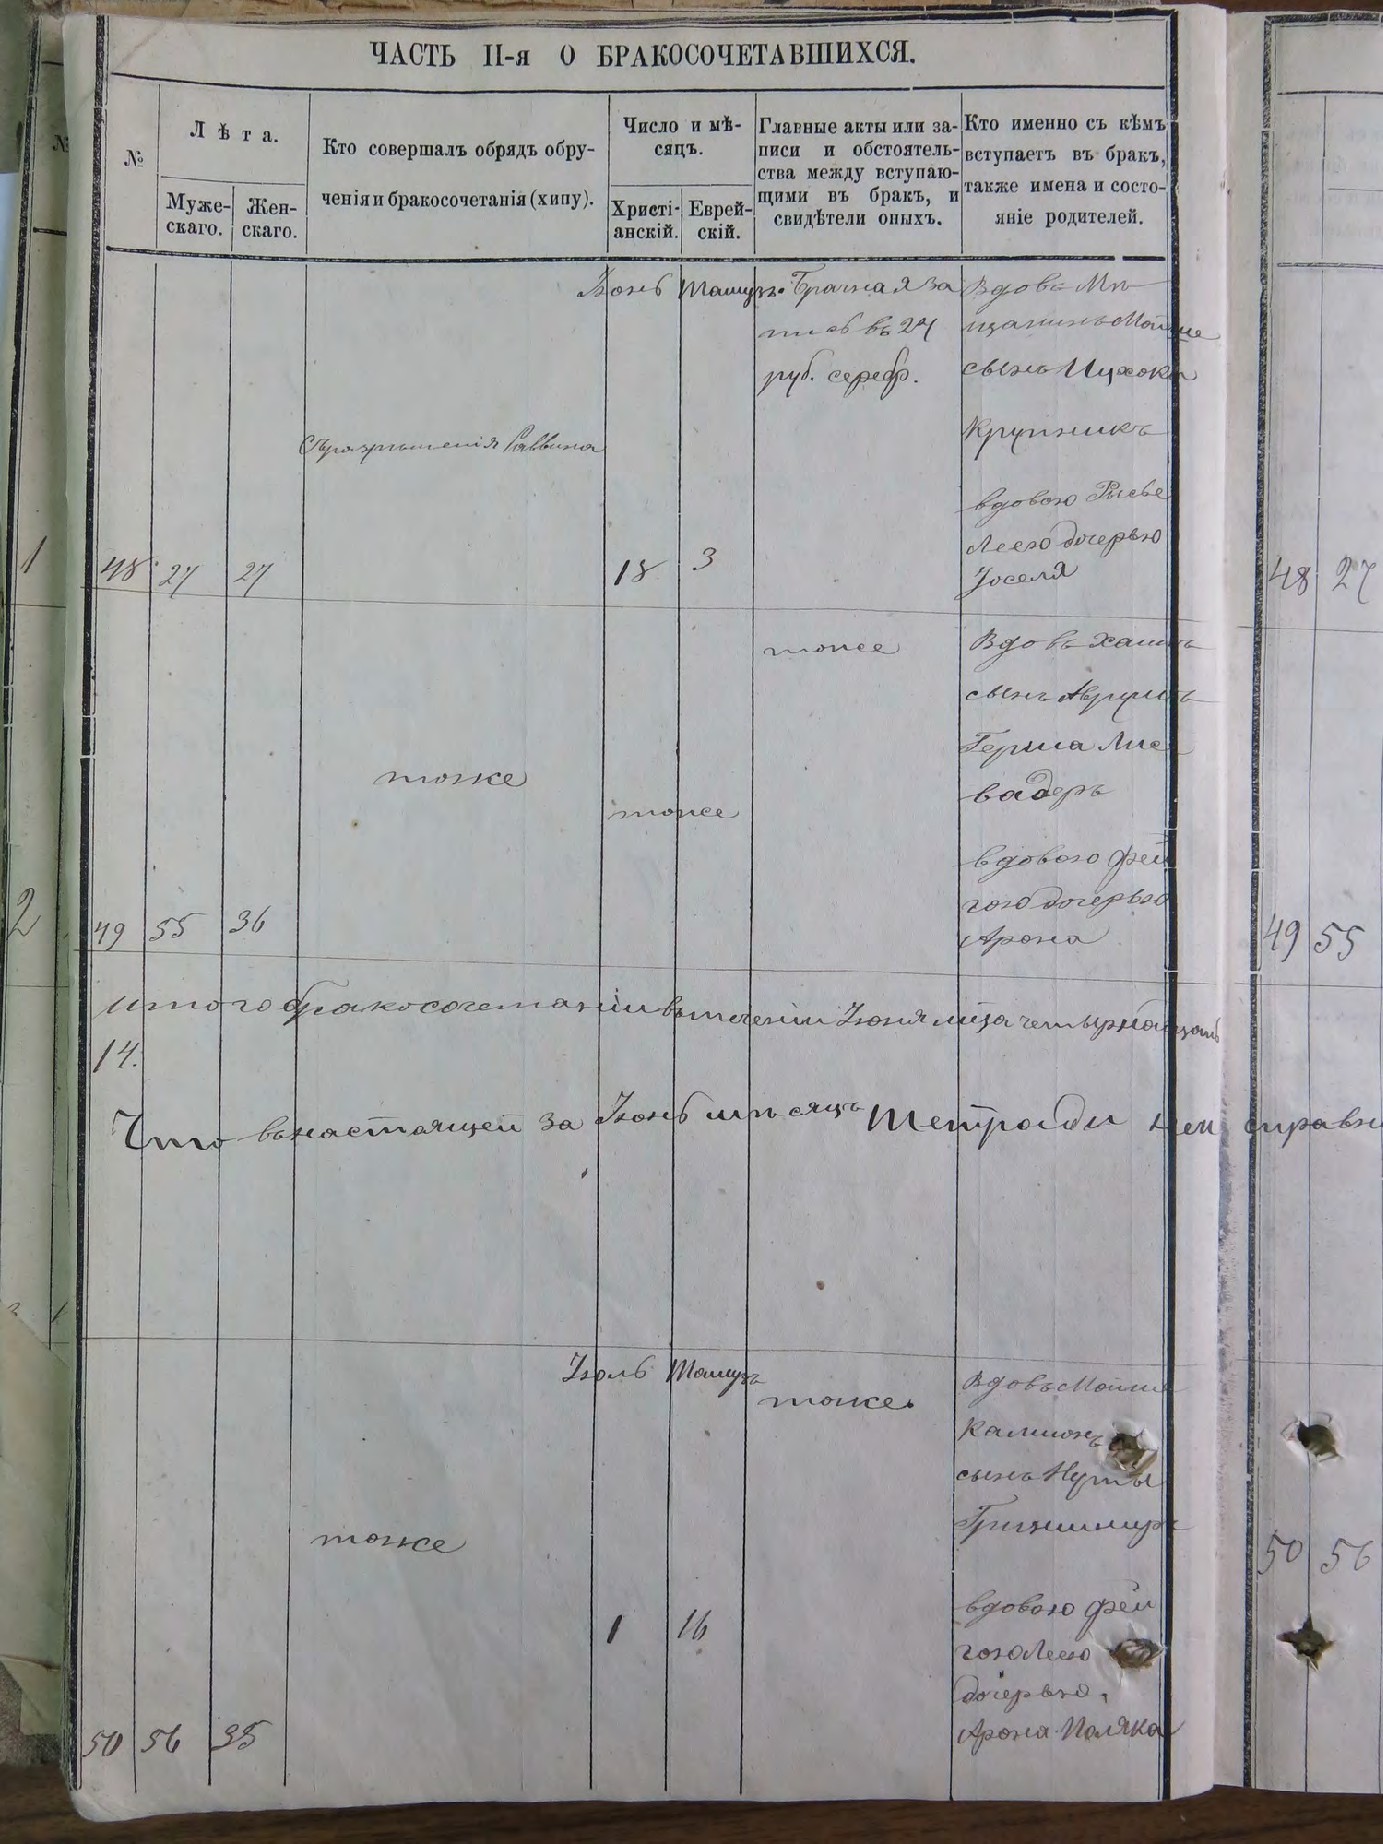 ЧАСТЬ II-я О БРАКОСОЧЕТАВШИХСЯ.
№
Лѣта.
Муже-
скаго.
Жен-
скаго.
Кто совершалъ обрядъ обру-
ченія и бракосочетанія (хипу).
Число и мѣ-
сяцъ.
Христі-
анскій.
Еврей-
скій.
Главные акты или за-
писи и обстоятель-
ства между вступаю-
щими въ бракъ, и
свидѣтели оныхъ.
Кто именно съ кѣмъ
вступаетъ въ бракъ,
также имена и состо-
яніе родителей.
1
48 27 27
Съ разрѣшенія Раввина
Іюнь Тамузъ
18 3
Брачная за
пись въ 27
руб. серебр.
Вдовъ Мѣ
щанинъ Мойше
сынъ Ицхока
Крупникъ
вдовою Рысье
Леею дочерью
Іоселя
48 27
2
49 55 36
тоже
тоже
тоже
Вдовъ Хаимъ
сынъ
Герша
вадеръ
вдовою Фей
гою дочерью
Арона
49 55
Итого бракосочетаній въ теченіи Іюня мѣца четырнадцать
14.
Что въ настоящей за Іюнь мѣсяцъ тетради
50 56 35
тоже
Іюль Тамузъ
1 16
тоже
Вдовъ Мойше
Калмонъ
сынъ Нуты
вдовою Фей
гою Леею
дочерью
Арона Поляка
50 56